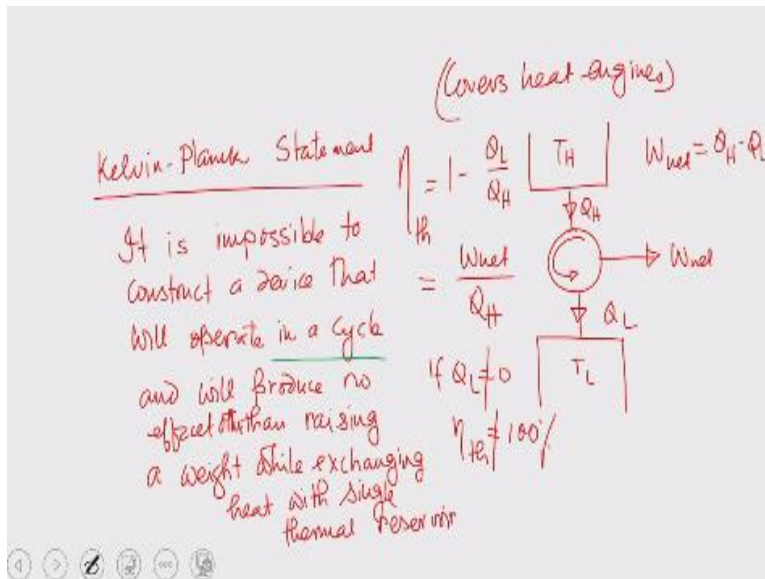 (Covers heat engines)
Kelvin-Planck Statement
It is impossible to
construct a device that
will operate in a cycle
and will produce no
effect other than raising
a weight while exchanging
heat with single
thermal reservoir
η_th = 1 - Q_L / Q_H
= W_net / Q_H
if Q_L ≠ 0
η_th ≠ 100%
T_H
W_net = Q_H - Q_L
Q_H
W_net
Q_L
T_L